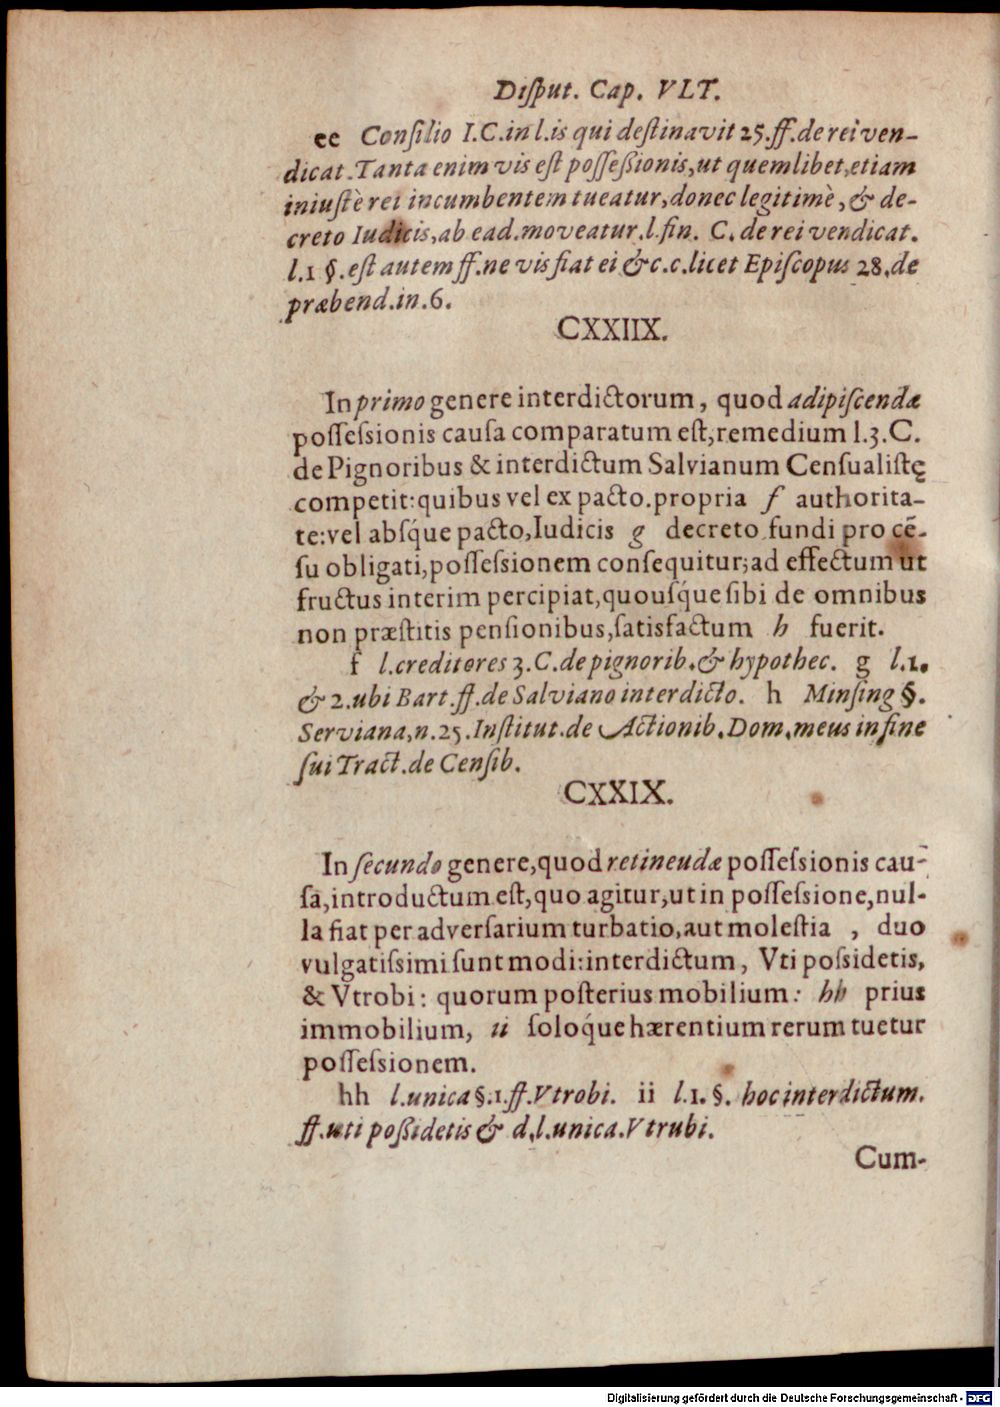 Diſput. Cap. VLT.
ee Conſilio I.C. in l. is qui deſtinavit 25. ff. de rei ven-
dicat. Tanta enim vis eſt poſſeßionis, ut quemlibet, etiam
iniuſtè rei incumbentem tueatur, donec legitimè, & de-
creto Iudicis, ab ead. moveatur. l. fin. C. de rei vendicat.
l. 1 §. eſt autem ff. ne vis fiat ei & c. c. licet Epiſcopus 28. de
præbend. in. 6.
CXXIIX.
In primo genere interdictorum, quod adipiſcendæ
poſſeſsionis cauſa comparatum eſt, remedium l. 3. C.
de Pignoribus & interdictum Salvianum Cenſualiſtę
competit: quibus vel ex pacto. propria f authorita-
te: vel abſq́ue pacto, Iudicis g decreto fundi pro cē-
ſu obligati, poſſeſsionem conſequitur; ad effectum ut
fructus interim percipiat, quouſq́ue ſibi de omnibus
non præſtitis penſionibus, ſatisfactum h fuerit.
f l. creditores 3. C. de pignorib. & hypothec. g l. 1.
& 2. ubi Bart. ff. de Salviano interdicto. h Minſing §.
Serviana, n. 25. Inſtitut. de Actionib. Dom. meus in fine
ſui Tract. de Cenſib.
CXXIX.
In ſecundo genere, quod retineudæ poſſeſsionis cau-
ſa, introductum eſt, quo agitur, ut in poſſeſsione, nul-
la fiat per adverſarium turbatio, aut moleſtia , duo
vulgatiſsimi ſunt modi: interdictum, Vti poſsidetis,
& Vtrobi: quorum poſterius mobilium: hh prius
immobilium, ii ſoloq́ue hærentium rerum tuetur
poſſeſsionem.
hh l. unica §. 1. ff. Vtrobi. ii l. 1. §. hoc interdictum.
ff. uti poßidetis & d. l. unica. Vtrubi.
Cum-
Digitalisierung gefördert durch die Deutsche Forschungsgemeinschaft - DFG